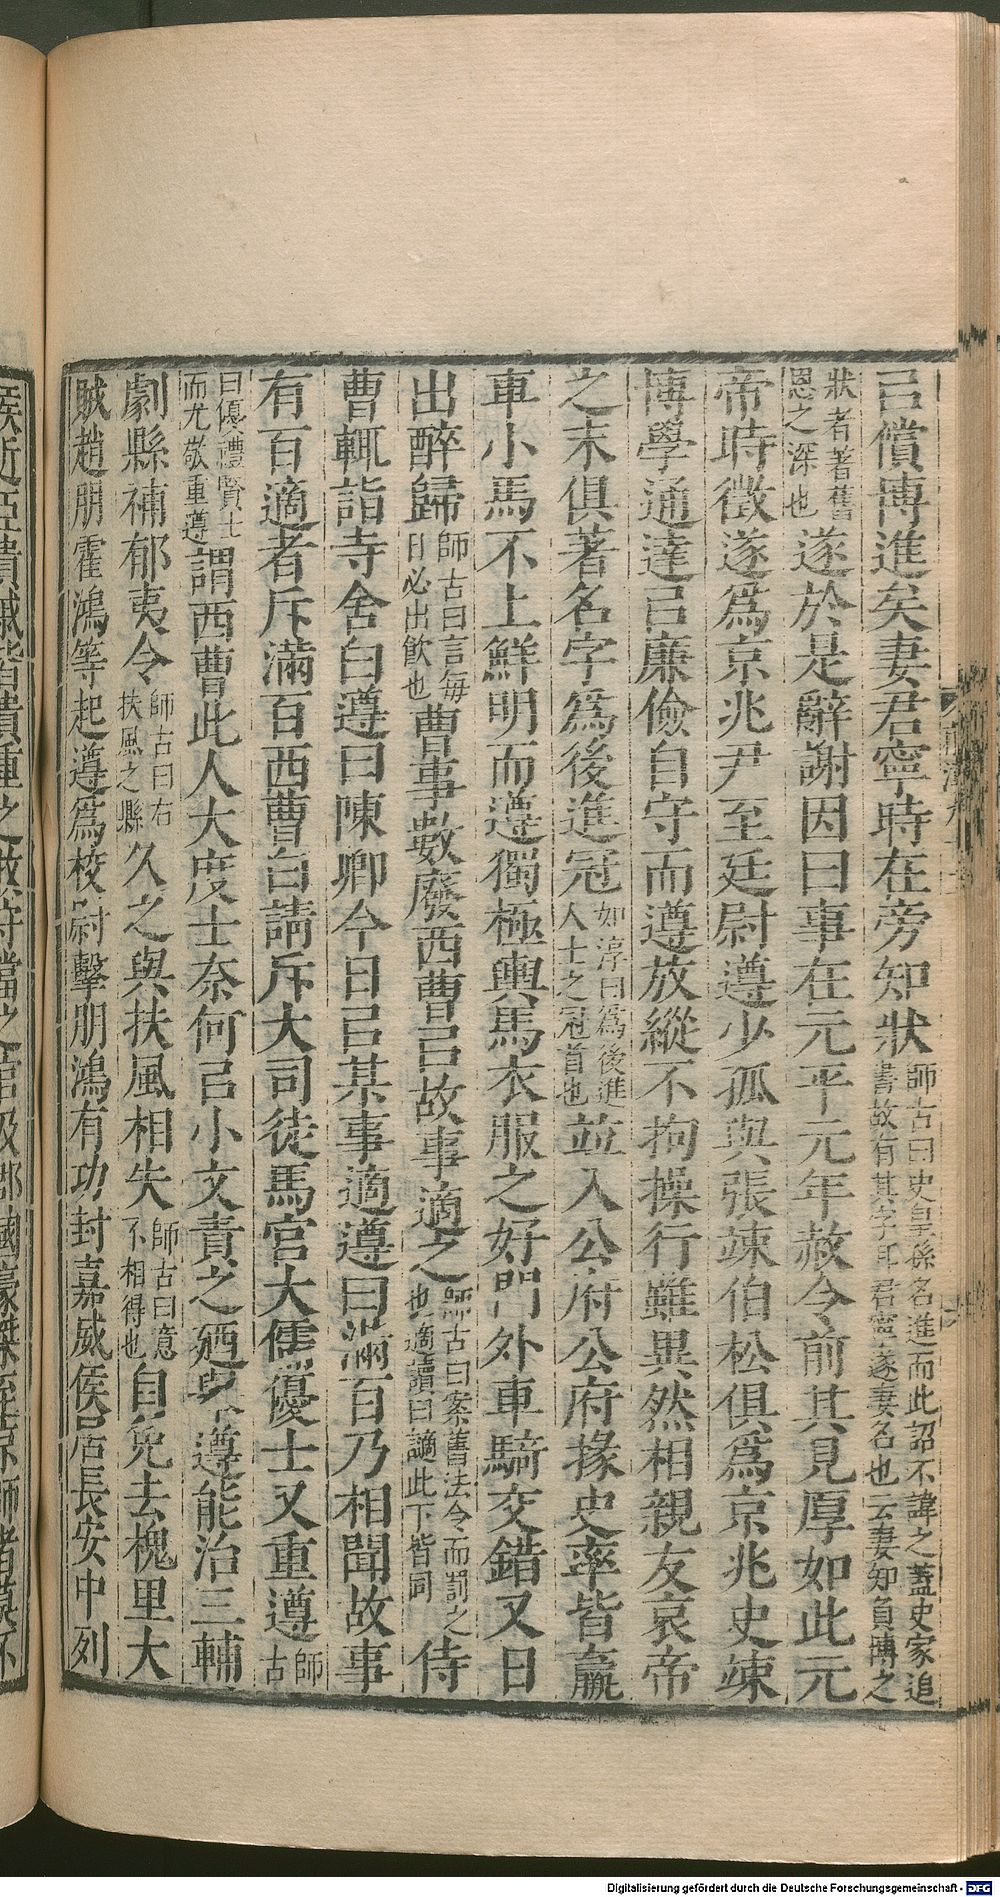 㠯償博進矣妻君寧時在旁知狀師古曰史皇孫名進而此詔不諱之蓋史家追書故有其字耳君寧遂妻名也云妻知負博之
狀者著舊恩之深也遂於是辭謝因曰事在元平元年赦令前其見厚如此元
帝時徵遂爲京兆尹至廷尉遵少孤與張竦伯松俱爲京兆史竦
博學通達㠯廉儉自守而遵放縱不拘操行雖異然相親友哀帝
之末俱著名字爲後進冠如淳曰爲後進人士之冠首也並入公府公府掾史率皆羸
車小馬不上鮮明而遵獨極輿馬衣服之好門外車騎交錯又日
出醉歸師古曰言每日必出飲也曹事數廢西曹㠯故事適之師古曰案舊法令而罰之也適讀曰謫此下皆同侍
曹輒詣寺舍白遵曰陳卿今日㠯某事適遵曰滿百乃相聞故事
有百適者斥滿百西曹白請斥大司徒馬宮大儒優士又重遵師古
曰優禮賢士而尤敬重遵謂西曹此人大度士奈何㠯小文責之廼舉遵能治三輔
劇縣補郁夷令師古曰右扶風之縣久之與扶風相失師古曰意不相得也自免去槐里大
賊趙朋霍鴻等起遵爲校尉擊朋鴻有功封嘉威侯居長安中列
Digitalisierung gefördert durch die Deutsche Forschungsgemeinschaft - DFG